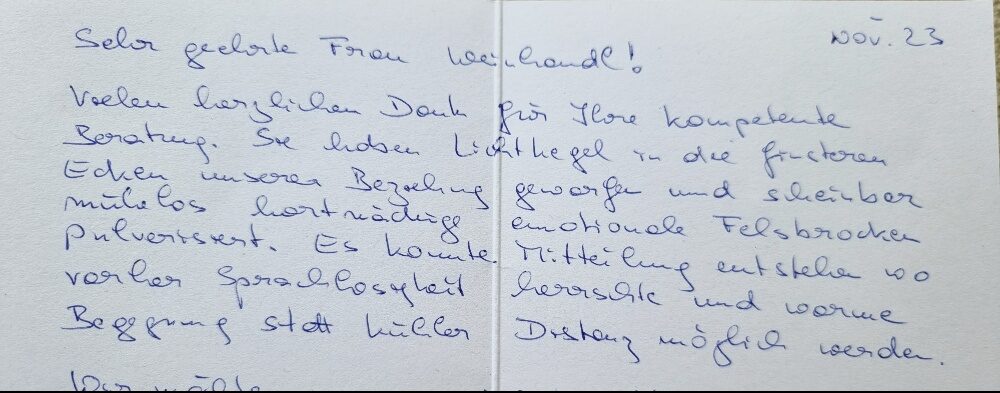 Nov. 23
Sehr geehrte Frau Weinhandl!
Vielen herzlichen Dank für Ihre kompetente
Beratung. Sie haben Lichtkegel in die finsteren
Ecken unserer Beziehung geworfen und scheinbar
mühelos hartnäckige emotionale Felsbrocken
pulverisiert. Es konnte Mitteilung entstehen wo
vorher Sprachlosigkeit herrschte und warme
Begegnung statt kühler Distanz möglich werden.
Wir